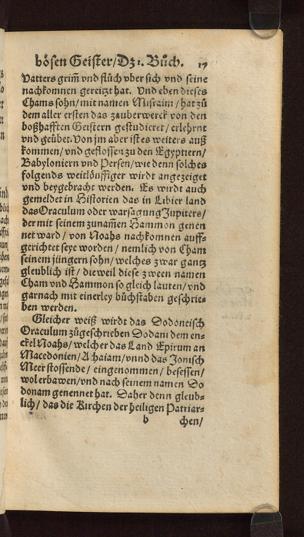 bösen Geister/ Dz 1. Bůch. 17
Vatters grim̃ vnd flůch vber sich vnd seine
nachkomnen gereitzt hat. Vnd eben dieses
Chams sohn/ mit namen Misraim/ hat zů
dem aller ersten das zauberwerck von den
boßhafften Geistern gestudieret/ erlehrnt
vnd geübet. Von jm aber ist es weiters auß
kommen/ vnd gestossen zu den Egyptiern/
Babyloniern vnd Persen/ wie denn solches
folgends weitlöuffiger wirdt angezeiget
vnd beygebracht werden. Es wirdt auch
gemeldet in Historien das in Libier land
das Oraculum oder warsagung Jupiters/
der mit seinem zunam̃en Hammon genen
net ward/ von Noahs nachkomnen auff=
gerichtet seye worden/ nemlich von Cham
seinem jüngern sohn/ welches zwar gantz
gleublich ist/ dieweil diese zween namen
Cham vnd Hammon so gleich lauten/ vnd
garnach mit einerley bůchstaben geschrie=
ben werden.
Gleicher weiß wirdt das Dodoneisch
Oraculum zůgeschrieben Dodani dem en=
ckel Noahs/ welcher das Land Epirum an
Macedonien/ Achaiam/ vnnd das Jonisch
Meer stossende/ eingenommen/ besessen/
wol erbawen/ vnd nach seinem namen Do
donam genennet hat. Daher denn gleub=
lich/ das die Kirchen der heiligen Patriar=
b chen/